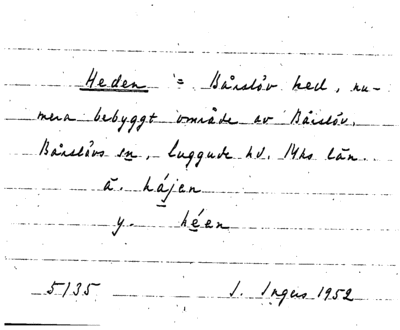 Heden = Bårslöv hed, nu-
mera bebyggt område av Bårslöv.
Bårslövs sn, Luggude hd. Mhs län.
ä. hájen
y. héen
5135 I. Ingers 1952